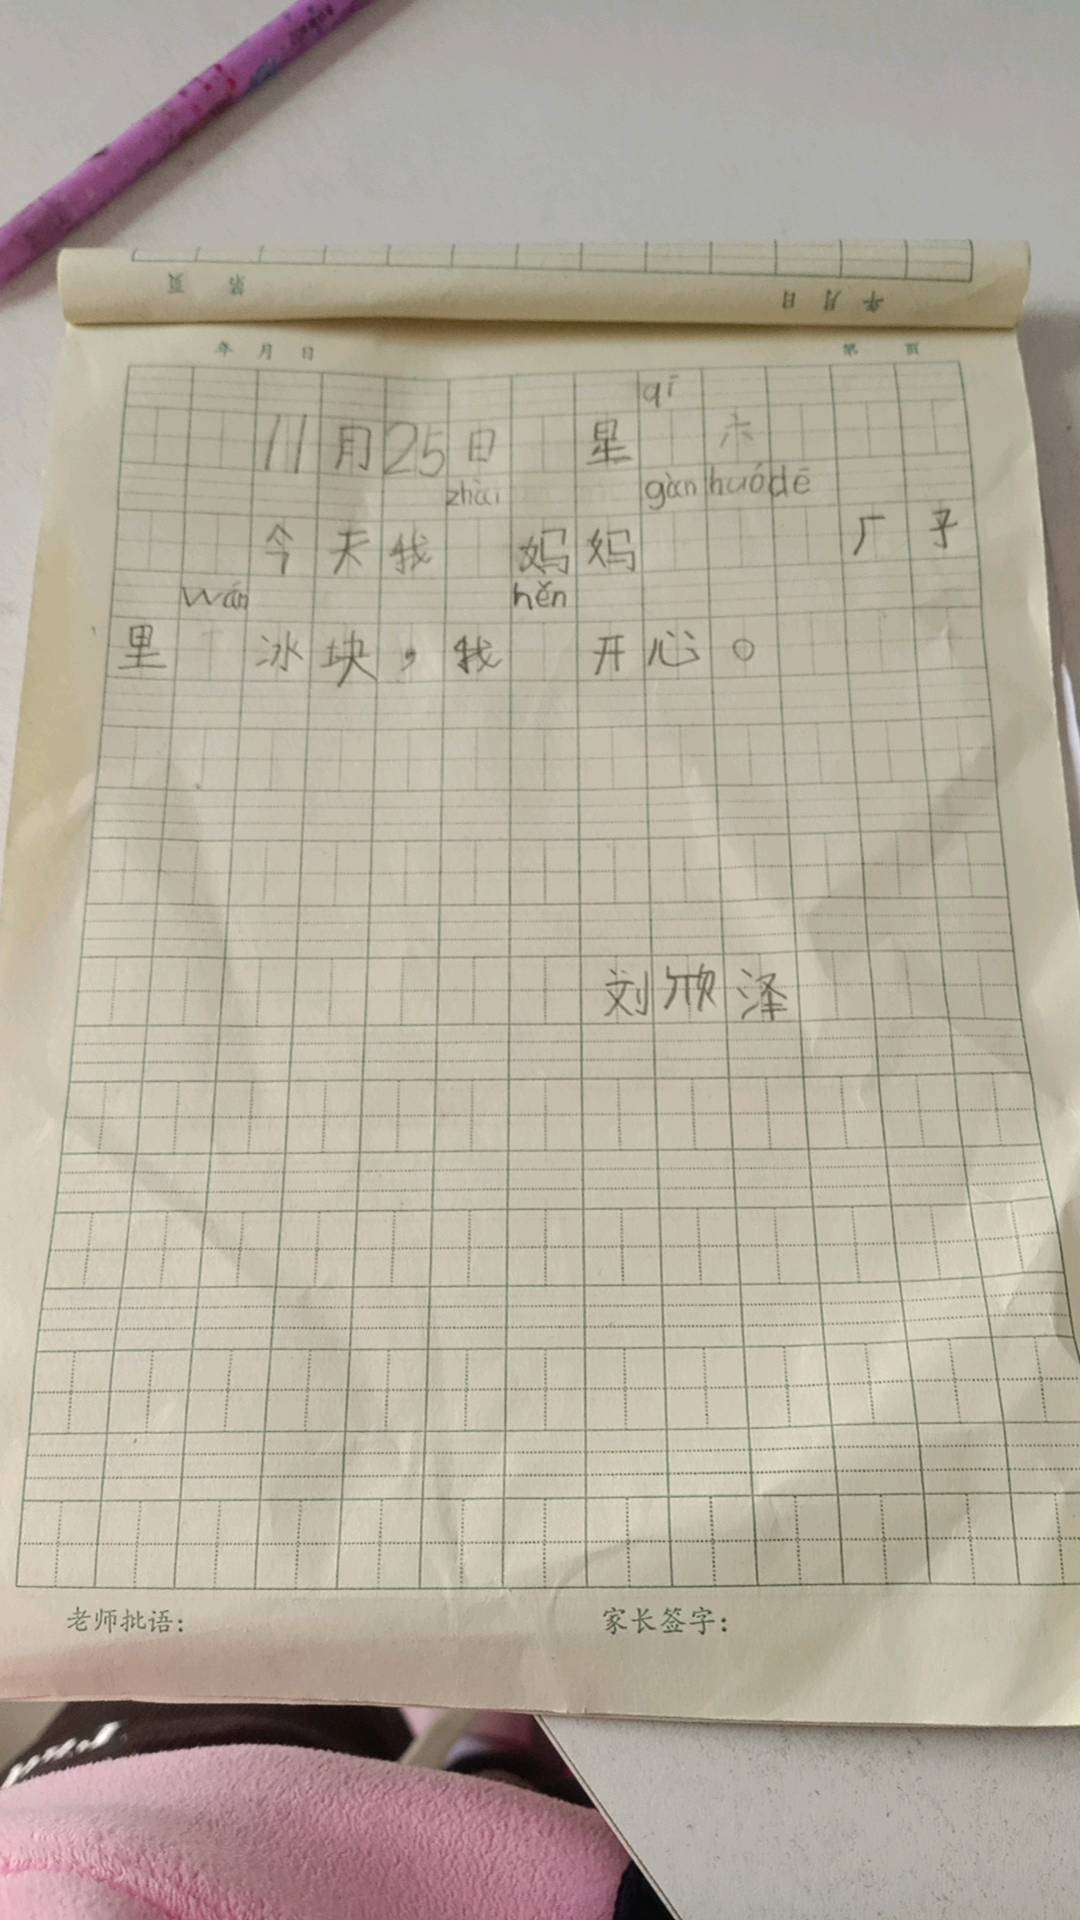 第 页 年 月 日
年 月 日 第 页
qī
11月25日 星 六
zhài gàn huó dē
今天我 妈妈 厂子
wán hěn
里 冰块，我 开心。
刘欣泽
老师批语： 家长签字：